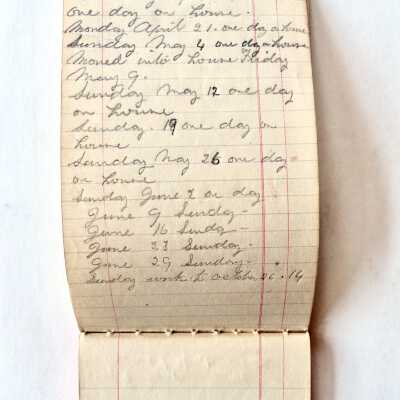 one day on house.
Monday April 21. one day a home
Sunday May 4 one day a house
Moved into house Friday
May 9.
Sunday May 12 one day
on house
Sunday. 19 one day on
house
Sunday May 26 one day
on house
Sunday June 2 on day.
June 9 Sunday-
June 16 Sunday-
June 23 Sunday.
June 29 Sunday-
Sunday work to October 26. 14